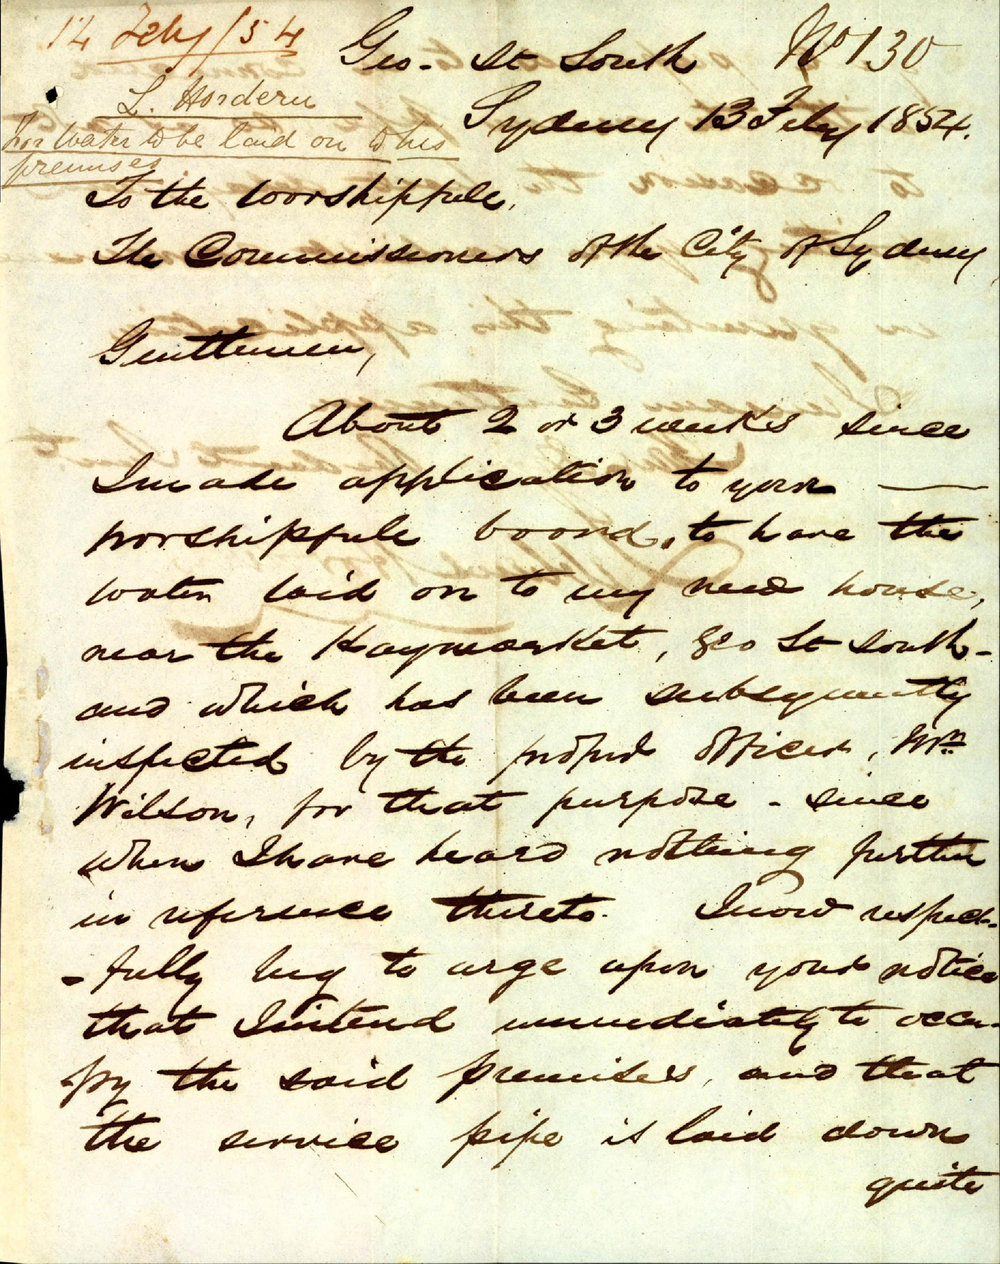 14 Feby/54
Geo. St South No 130
L. Hordern
Sydney 13 Feby 1854.
For Water to be laid on to his
premises
To the Worshippule,
The Commissioners of the City of Sydney,
Gentlemen,
About 2 or 3 weeks since
I made application to your
worshippule board, to have the
water laid on to my new house,
near the Haymarket, Geo St South-
and which has been subsequently
inspected by the proper officer, Mr
Wilson, for that purpose - since
when I have heard nothing further
in reference thereto. I now respect-
-fully beg to urge upon your notice
that I intend immediately to occu-
-py the said premises, and that
the service pipe is laid down
quite